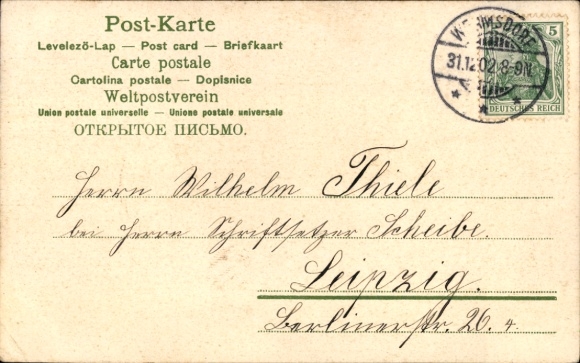 Post-Karte
Levelező-Lap — Post card — Briefkaart
Carte postale
Cartolina postale — Dopisnice
Weltpostverein
Union postale universelle — Unione postale universale
ОТКРЫТОЕ ПИСЬМО.
WERMSDORF
31.12.02.8-9N.
5
DEUTSCHES REICH
Herrn Wilhelm Thiele
bei Herrn Schriftsetzer Scheibe.
Leipzig.
Berlinerstr. 26. 4.